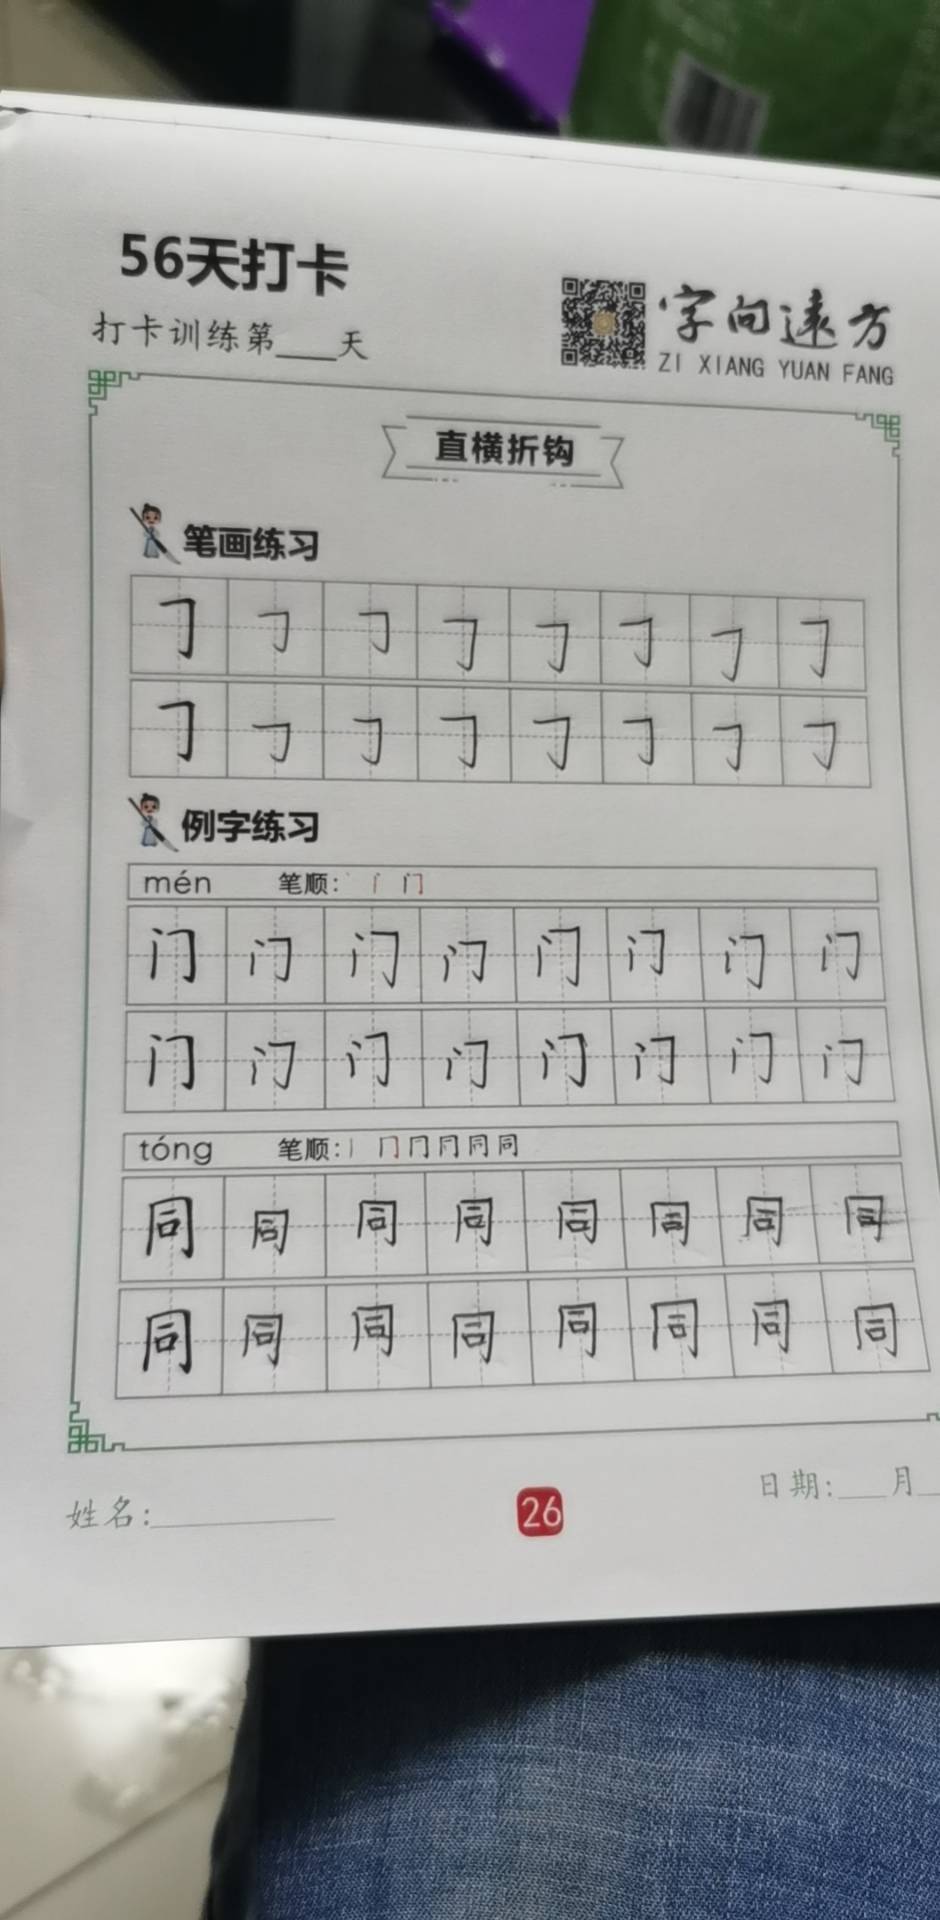 56天打卡
打卡训练第____天
字向远方
ZI XIANG YUAN FANG
直横折钩
笔画练习
𠃌 𠃌 𠃌 𠃌 𠃌 𠃌 𠃌 𠃌
𠃌 𠃌 𠃌 𠃌 𠃌 𠃌 𠃌 𠃌
例字练习
mén 笔顺: 丶 门
门 门 门 门 门 门 门 门
门 门 门 门 门 门 门 门
tóng 笔顺: 丨 冂 同 同
同 同 同 同 同 同 同 同
同 同 同 同 同 同 同 同
姓名:____________
26
日期:____月__